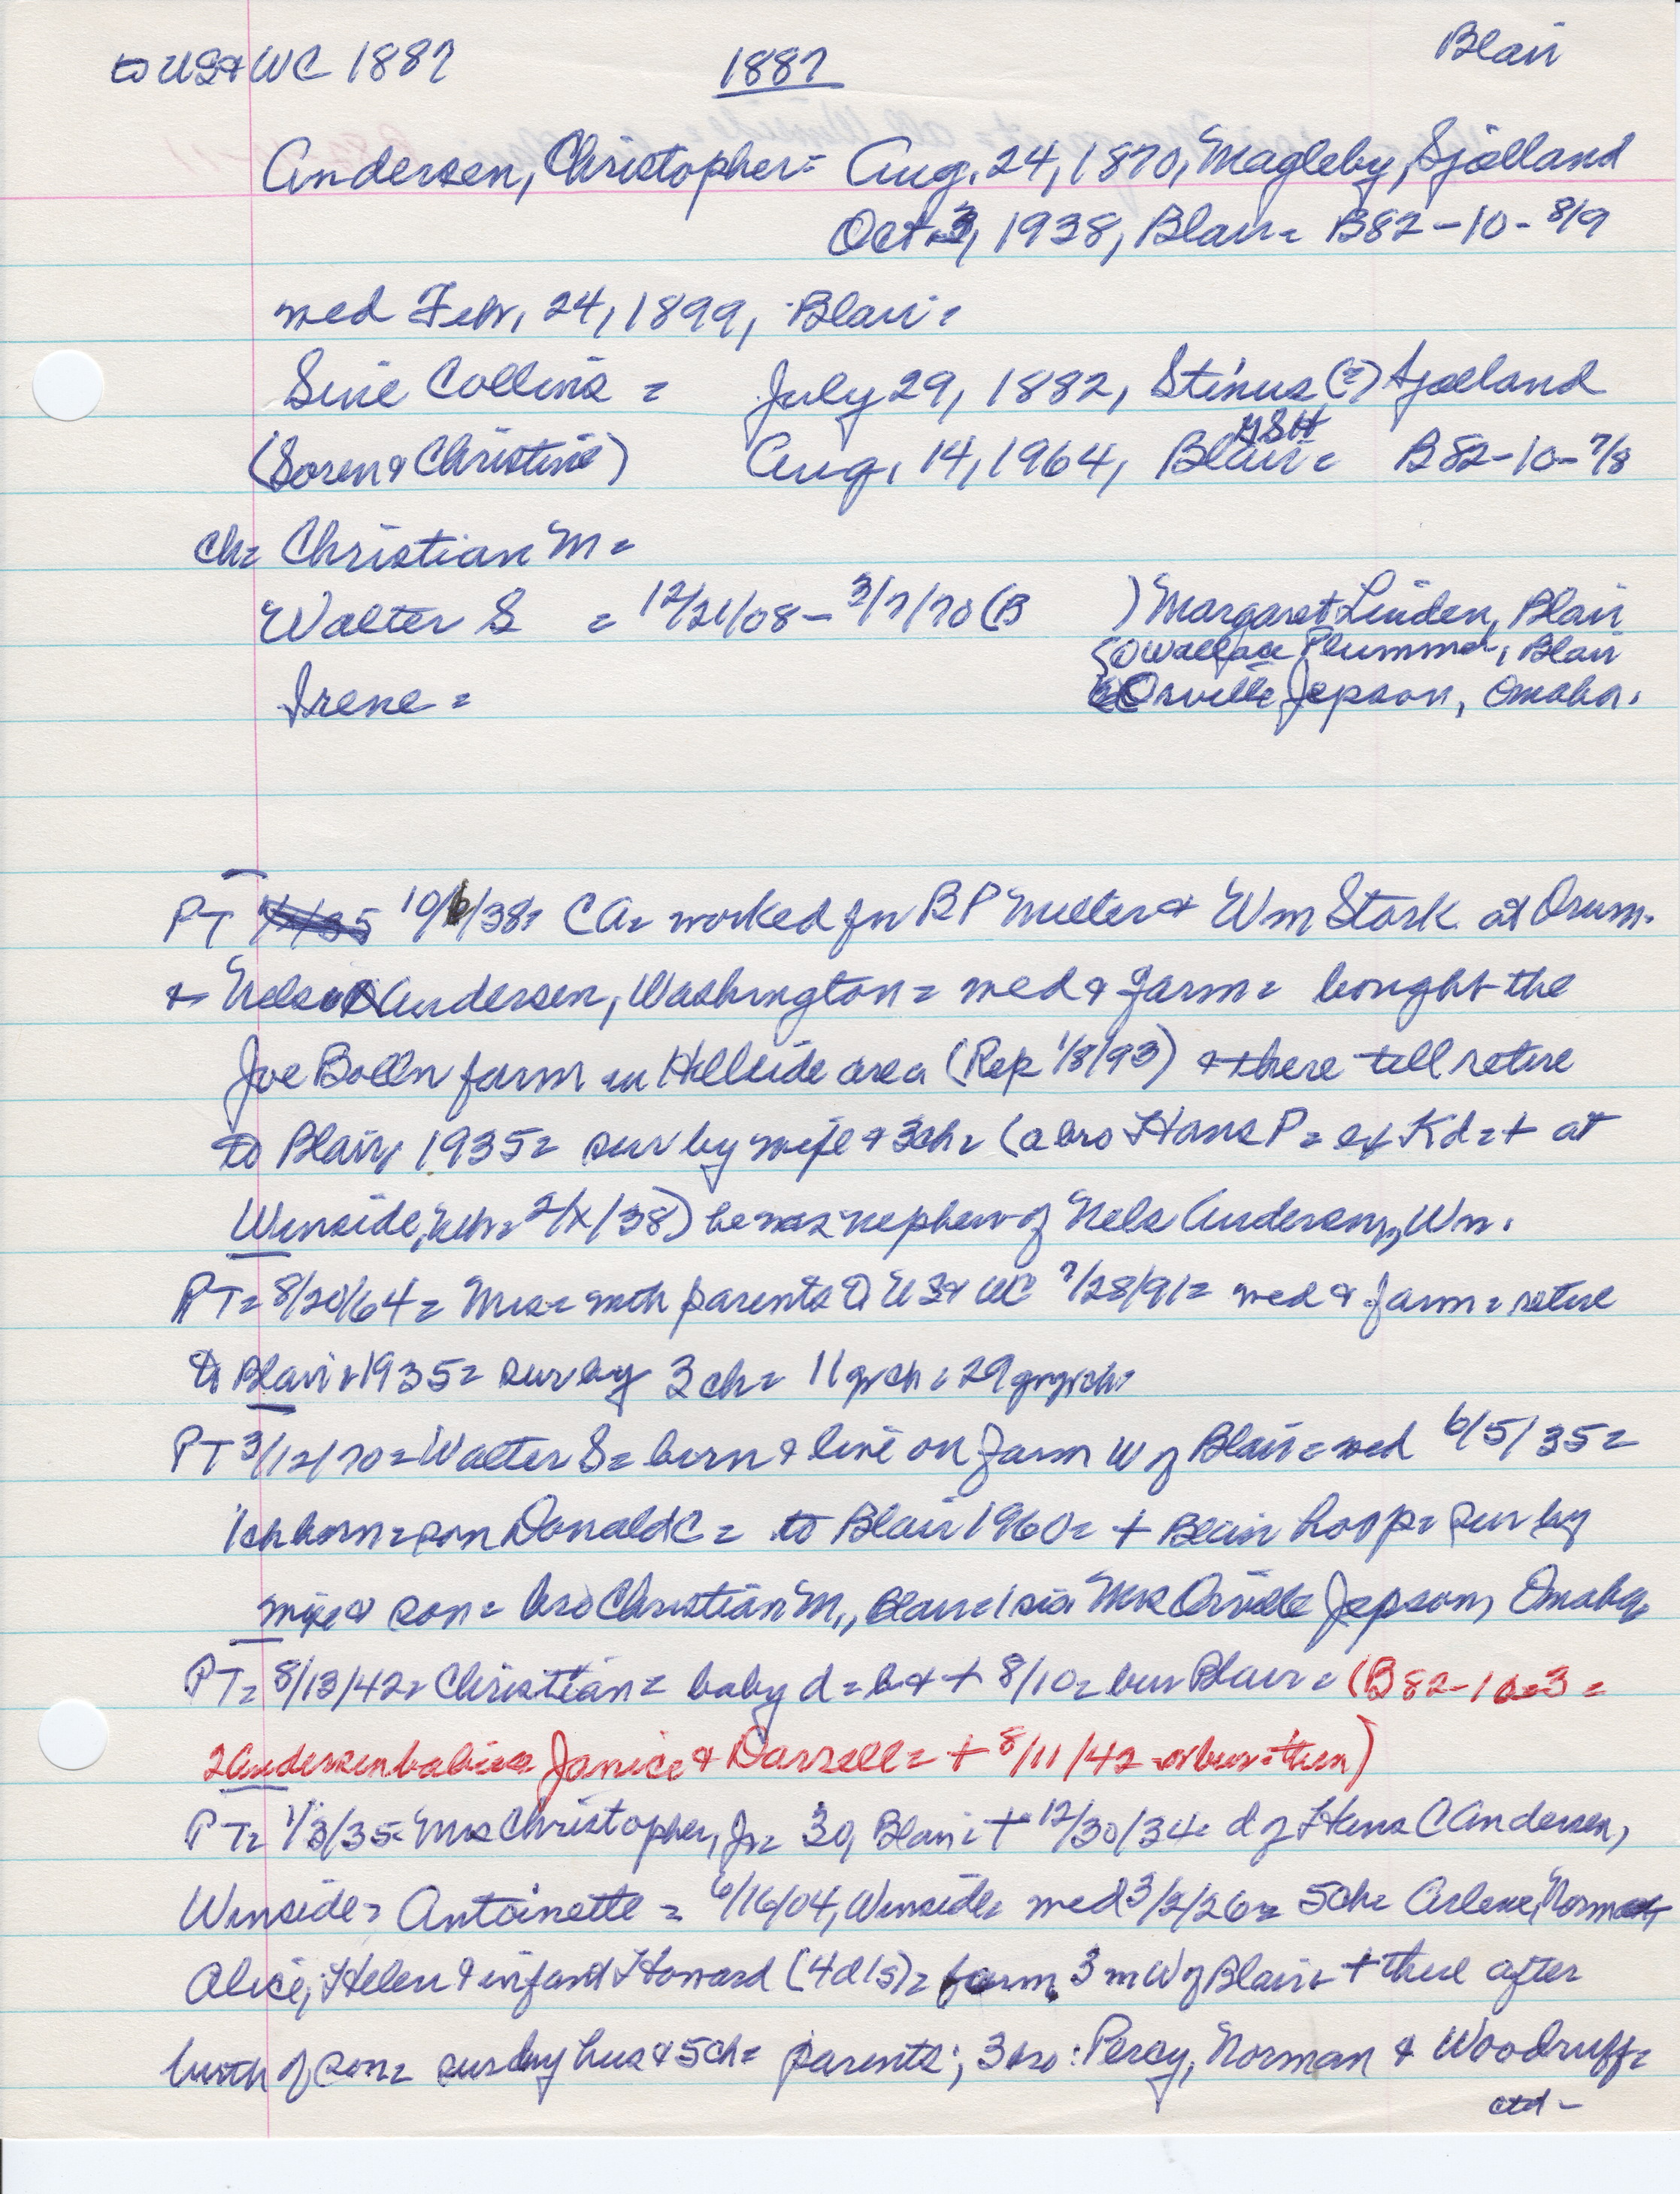 to US & WC 1887
1887
Blair
Andersen, Christopher = Aug. 24, 1870, Magleby, Sjælland
Oct 3, 1938, Blair = B82-10-8/9
med Febr. 24, 1899, Blair =
Sine Collins = July 29, 1882, Stinus (?) Sjælland
(Soren & Christine) Aug. 14, 1964, Blair = B82-10-7/8
ch = Christian M =
Walter S = 12/21/08 - 3/7/70 (B ) Margaret Linden, Blair
Wallace Plummer, Blair
Irene = Orville Jepson, Omaha.
PT 10/6/38 = CA = worked for BP & Wm Stork at Orum.
& Nels Andersen, Washington = med & farm = bought the
Joe farm in Hillside area (Rep 1/8/93) & there till retire
to Blair, 1935 = sur by wife & 3 ch = (a bro Hans P = ex Kd = + at
Winside, Nebr = 2/x/38) he was nephew of Nels Andersen, Wn.
PT = 8/20/64 = Mrs = with parents to US & WC 7/28/91 = med & farm = retire
to Blair 1935 = sur by 3 ch = 11 grch = 29 grgrch =
PT 3/12/70 = Walter S = born & live on farm W of Blair = med 6/5/35 =
1 ch born = son Donald C = to Blair 1960 = + Blair hosp = sur by
wife & son = bro Christian M., Blair = 1 sis Mrs Orville Jepson, Omaha
PT = 8/13/42 = Christian = baby d = b & + 8/10 = bur Blair = (B82-10-3 =
2 Andersen babies Janice & Darrell = + 8/11/42 - or bur = then)
PT = 1/3/35 = Mrs Christopher, Jr = 30, Blair = + 12/30/34 = d of Hans C Andersen,
Winside = Antoinette = 6/16/04, Winside = med 3/2/26 = 5 ch = Arlene,
Alice, Helen & infant Howard (4d 1s) = farm 3 m W of Blair & + there after
birth of son = sur by hus & 5 ch = parents; 3 bro: Percy, Norman & Woodruff =
ctd -